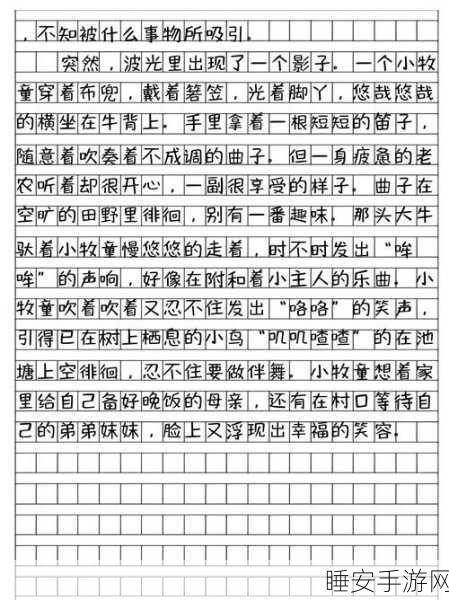 ，不知被什么事物所吸引。
突然，波光里出现了一个影子。一个小牧
童穿着布兜，戴着箬笠，光着脚丫，悠哉悠哉
的横坐在牛背上。手里拿着一根短短的笛子，
随意着吹奏着不成调的曲子。但一身疲惫的老
农听着却很开心，一副很享受的样子。曲子在
空旷的田野里徘徊，别有一番趣味。那头大牛
驮着小牧童慢悠悠的走着，时不时发出“哞
哞”的声响，好像在附和着小主人的乐曲。小
牧童吹着吹着又忍不住发出“咯咯”的笑声，
引得已在树上栖息的小鸟“叽叽喳喳”的在池
塘上空徘徊，忍不住要做伴舞。小牧童想着家
里给自己备好晚饭的母亲，还有在村口等待自
己的弟弟妹妹，脸上又浮现出幸福的笑容。
睡安手游网